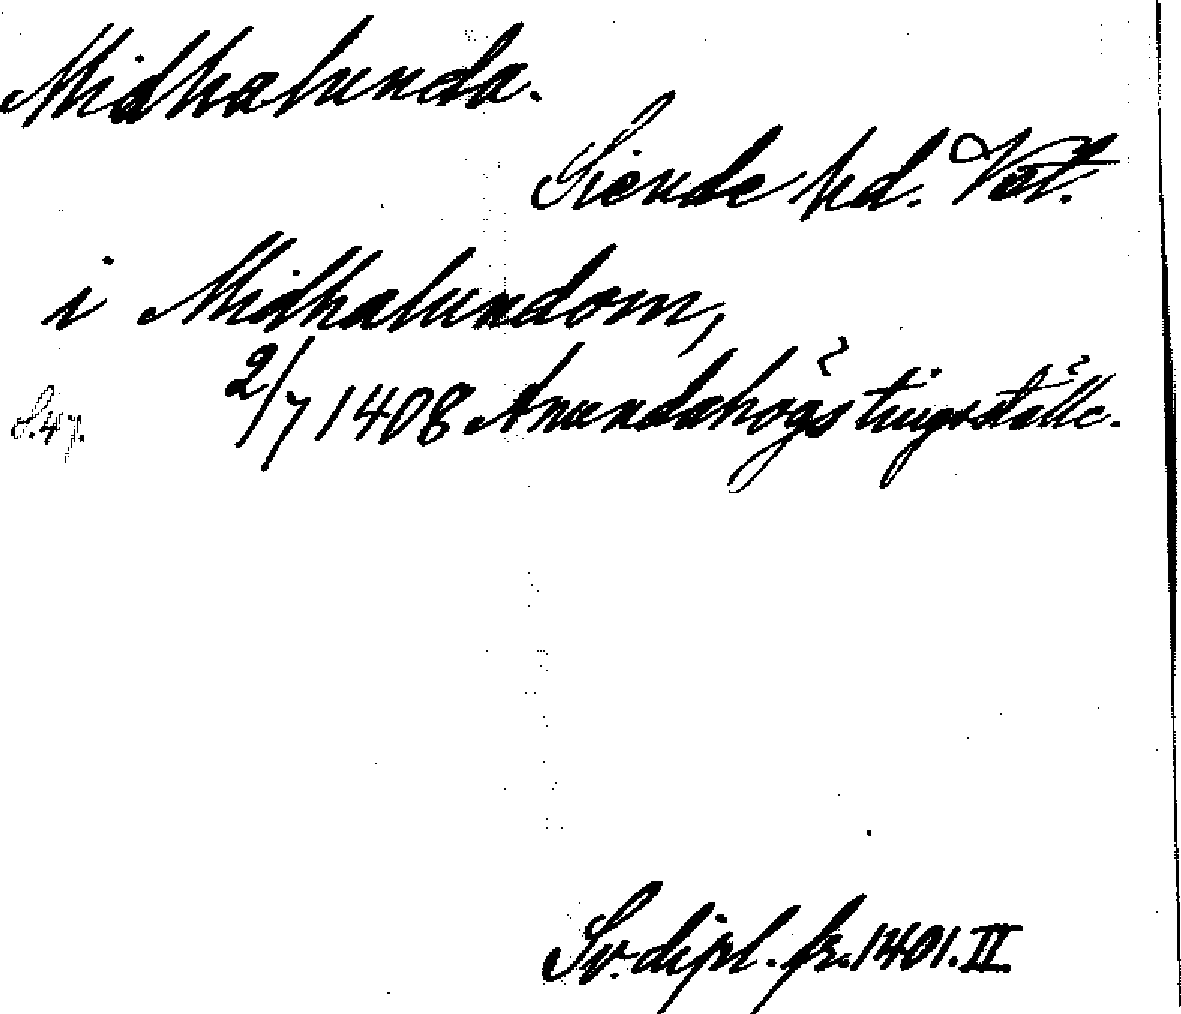 Midhalunda.
Siende hd. Vstl.
i Midhalundom,
2/7 1408 Anundahögs tingställe.
S. 47.
Sv. dipl. fr. 1401. II.